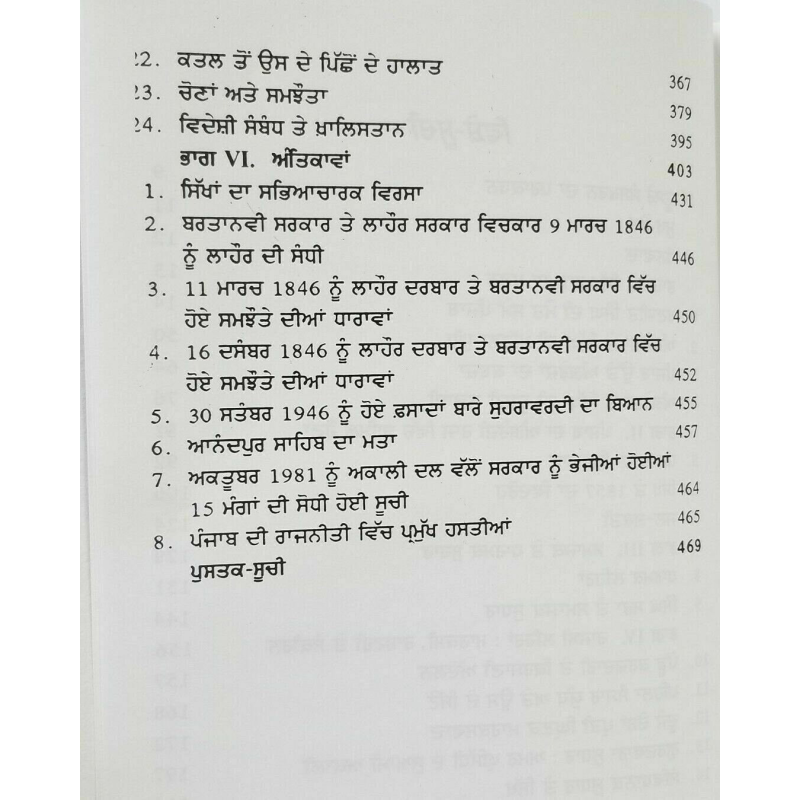 22. ਕਤਲ ਤੋਂ ਉਸ ਦੇ ਪਿੱਛੋਂ ਦੇ ਹਾਲਾਤ 367
23. ਚੋਣਾਂ ਅਤੇ ਸਮਝੌਤਾ 379
24. ਵਿਦੇਸ਼ੀ ਸੰਬੰਧ ਤੇ ਖ਼ਾਲਿਸਤਾਨ 395
ਭਾਗ VI. ਅੰਤਿਕਾਵਾਂ 403
1. ਸਿੱਖਾਂ ਦਾ ਸਭਿਆਚਾਰਕ ਵਿਰਸਾ 431
2. ਬਰਤਾਨਵੀ ਸਰਕਾਰ ਤੇ ਲਾਹੌਰ ਸਰਕਾਰ ਵਿਚਕਾਰ 9 ਮਾਰਚ 1846
ਨੂੰ ਲਾਹੌਰ ਦੀ ਸੰਧੀ 446
3. 11 ਮਾਰਚ 1846 ਨੂੰ ਲਾਹੌਰ ਦਰਬਾਰ ਤੇ ਬਰਤਾਨਵੀ ਸਰਕਾਰ ਵਿੱਚ
ਹੋਏ ਸਮਝੌਤੇ ਦੀਆਂ ਧਾਰਾਵਾਂ 450
4. 16 ਦਸੰਬਰ 1846 ਨੂੰ ਲਾਹੌਰ ਦਰਬਾਰ ਤੇ ਬਰਤਾਨਵੀ ਸਰਕਾਰ ਵਿੱਚ
ਹੋਏ ਸਮਝੌਤੇ ਦੀਆਂ ਧਾਰਾਵਾਂ 452
5. 30 ਸਤੰਬਰ 1946 ਨੂੰ ਹੋਏ ਫ਼ਸਾਦਾਂ ਬਾਰੇ ਸੁਹਰਾਵਰਦੀ ਦਾ ਬਿਆਨ 455
6. ਆਨੰਦਪੁਰ ਸਾਹਿਬ ਦਾ ਮਤਾ 457
7. ਅਕਤੂਬਰ 1981 ਨੂੰ ਅਕਾਲੀ ਦਲ ਵੱਲੋਂ ਸਰਕਾਰ ਨੂੰ ਭੇਜੀਆਂ ਹੋਈਆਂ
15 ਮੰਗਾਂ ਦੀ ਸੋਧੀ ਹੋਈ ਸੂਚੀ 464
8. ਪੰਜਾਬ ਦੀ ਰਾਜਨੀਤੀ ਵਿੱਚ ਪ੍ਰਮੁੱਖ ਹਸਤੀਆਂ 465
ਪੁਸਤਕ-ਸੂਚੀ 469